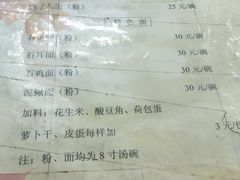 面（粉） 25元/碗
特色面
面（粉） 30元/碗
石耳面（粉） 30元/碗
石鸡面（粉） 30元/碗
泥鳅面（粉） 30元/碗
加料：花生米、酸豆角、荷包蛋
萝卜干、皮蛋每样加 3元/
注：粉、面均为8寸汤碗